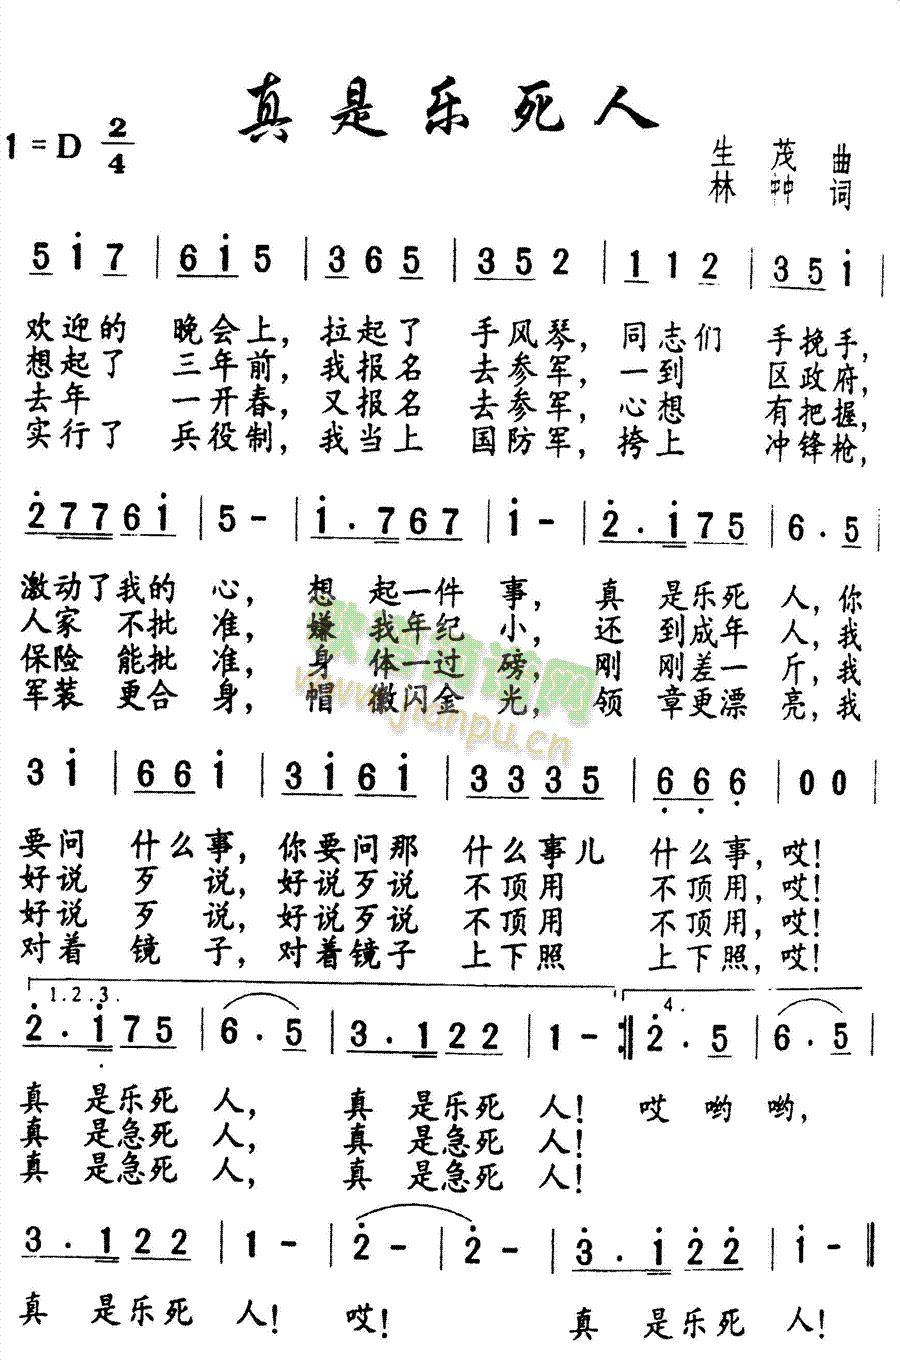 真是乐死人
1=D 2/4
生 茂 曲
林 中 词
5 1 7 | 6 1 5 | 3 6 5 | 3 5 2 | 1 1 2 | 3 5 1 |
欢迎的 晚会上, 拉起了 手风琴, 同志们 手挽手,
想起了 三年前, 我报名 去参军, 一到 区政府,
去年 一开春, 又报名 去参军, 心想 有把握,
实行了 兵役制, 我当上 国防军, 挎上 冲锋枪,
2 7 7 6 1 | 5 - | 1 . 7 6 7 | 1 - | 2 . 1 7 5 | 6 . 5 |
激动了我的 心, 想 起一件 事, 真 是乐死 人, 你
人家 不批 准, 嫌 我年纪 小, 还 到成年 人, 我
保险 能批 准, 身 体一过 磅, 刚 刚差一 斤, 我
军装 更合 身, 帽 徽闪金 光, 领 章更漂 亮, 我
歌谱简谱网
www.jianpu.cn
3 1 | 6 6 1 | 3 1 6 1 | 3 3 3 5 | 6 6 6 | 0 0 |
要问 什么事, 你要问那 什么事儿 什么事, 哎!
好说 歹 说, 好说歹说 不顶用 不顶用, 哎!
好说 歹 说, 好说歹说 不顶用 不顶用, 哎!
对着 镜 子, 对着镜子 上下照 上下照, 哎!
1.2.3. 4.
2 . 1 7 5 | 6 . 5 | 3 . 1 2 2 | 1 - :‖ 2 . 5 | 6 . 5 |
真 是乐死 人, 真 是乐死 人! 哎 哟 哟,
真 是急死 人, 真 是急死 人!
真 是急死 人, 真 是急死 人!
3 . 1 2 2 | 1 - | 2 - | 2 . | 3 . 1 2 2 | 1 - ‖
真 是乐死 人! 哎! 真 是乐死 人!